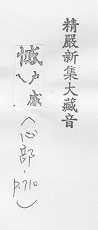 精嚴新集大藏音
戶
(心部, p.710)